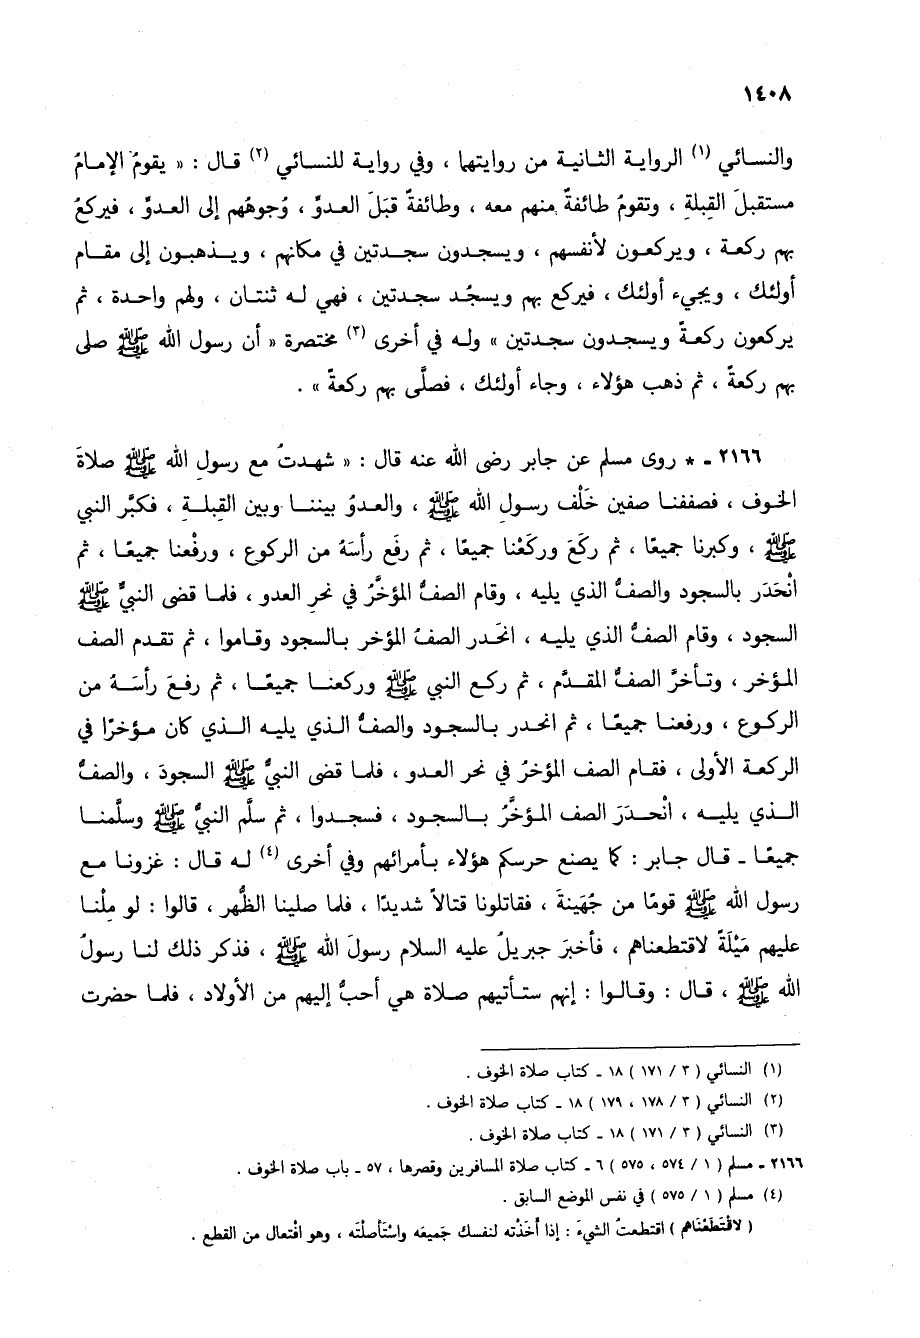 ١٤٠٨
والنسائي (١) الرواية الثانية من روايتها ، وفي رواية للنسائي (٢) قال : « يقومُ الإمامُ
مستقبلَ القِبلةِ ، وتقومُ طائفةٌ منهم معه ، وطائفةٌ قبَلَ العدوِّ ، وُجوهُهم إلى العدوِّ ، فيركعُ
بهم ركعة ، ويركعون لأنفسهم ، ويسجدون سجدتين في مكانهم ، ويذهبون إلى مقام
أولئك ، ويجيء أولئك ، فيركع بهم ويسجُد سجدتين ، فهي له ثنتان ، ولهم واحدة ، ثم
يركعون ركعةً ويسجدون سجدتين » وله في أخرى (٣) مختصرة « أن رسول الله ﷺ صلى
بهم ركعةً ، ثم ذهب هؤلاء ، وجاء أولئك ، فصلَّى بهم ركعةً » .
٢١٦٦ ـ * روى مسلم عن جابر رضى الله عنه قال : « شهدتُ مع رسولِ الله ﷺ صلاةَ
الخوف ، فصففنا صفين خَلْف رسولِ الله ﷺ ، والعدوُ بيننا وبين القِبلةِ ، فكبَّر النبي
ﷺ ، وكبرنا جميعًا ، ثم ركَعَ وركَعْنا جميعًا ، ثم رفَع رأسَهُ من الركوع ، ورفْعنا جميعًا ، ثم
انْحَدَر بالسجود والصفُّ الذي يليه ، وقام الصفُّ المؤخَّرُ في نحرِ العدو ، فلما قضى النبيُّ ﷺ
السجود ، وقام الصفُّ الذي يليه ، انحَدر الصفُ المؤخر بالسجود وقاموا ، ثم تقدم الصف
المؤخر ، وتأخرَّ الصفُّ المقدَّم ، ثم ركع النبي ﷺ وركعنا جميعًا ، ثم رفعَ رأسَهُ من
الركوع ، ورفعنا جميعًا ، ثم انحدر بالسجود والصفُّ الذي يليه الذي كان مؤخرًا في
الركعة الأولى ، فقام الصف المؤخرُ في نحر العدو ، فلما قضى النبيُّ ﷺ السجودَ ، والصفُّ
الذي يليه ، انْحدَرَ الصف المؤخَّرُ بالسجود ، فسجدوا ، ثم سلَّم النبيُّ ﷺ وسلَّمنا
جميعًا ـ قال جابر : كما يصنع حرسكم هؤلاء بأمرائهم وفي أخرى (٤) له قال : غزونا مع
رسول الله ﷺ قومًا من جُهَينةَ ، فقاتلونا قتالاً شديدًا ، فلما صلينا الظُّهر ، قالوا : لو مِلْنا
عليهم مَيْلَةً لاقتطعناهم ، فأخبرَ جبريلُ عليه السلام رسولَ الله ﷺ ، فذكر ذلك لنا رسولُ
الله ﷺ ، قال : وقالوا : إنهم ستأتيهم صلاة هي أحبُّ إليهم من الأولاد ، فلما حضرت
(١) النسائي ( ٣ / ١٧١ ) ١٨ ـ كتاب صلاة الخوف .
(٢) النسائي ( ٣ / ١٧٨ ، ١٧٩ ) ١٨ ـ كتاب صلاة الخوف .
(٣) النسائي ( ٣ / ١٧١ ) ١٨ ـ كتاب صلاة الخوف .
٢١٦٦ ـ مسلم ( ١ / ٥٧٤ ، ٥٧٥ ) ٦ ـ كتاب صلاة المسافرين وقصرها ، ٥٧ ـ باب صلاة الخوف .
(٤) مسلم ( ١ / ٥٧٥ ) في نفس الموضع السابق .
( لاقْتَطَعْنَاهم ) اقتطعتُ الشيءَ : إذا أَخَذْته لنفسك جَميعَه واسْتَأصلْتَه ، وهو افْتعال من القطع .